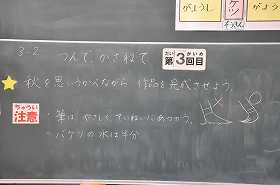 がようし
がよう
3-2 つんで、かさねて
だい かいめ
第3回目
秋を思いうかべながら 作品を完成させよう。
ちゅうい
注意
・筆は、やさしく ていねいにあつかう。
・バケツの水は半分